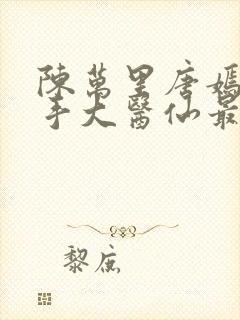 陳萬里唐嫣
手大醫仙最
黎庶